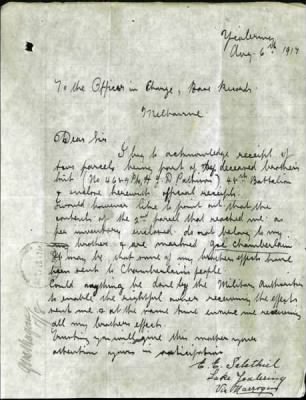 Yealering
Aug. 6th 1917
To the Officer in Charge, Base Records
Melbourne
Dear Sir
I beg to acknowledge receipt of
two parcels, being part of my deceased brother's
kit (No 4649 Pte H. J. D. ) 44th Battalion
& enclose herewith official receipt.
I would however like to point out that the
contents of the 2nd parcel that reached me as
per inventory enclosed do not belong to my
brother & are marked Chamberlain
It may be that some of my brothers effects have
been sent to Chamberlain's people
Could anything be done by the Military Authorities
to enable the rightful owner receiving the effects
sent me & at the same time ensure me receiving
all my brothers effects
Trusting you will give this matter your
attention yours in anticipation
E. E.
Lake Yealering
Via Narrogin
Yealering